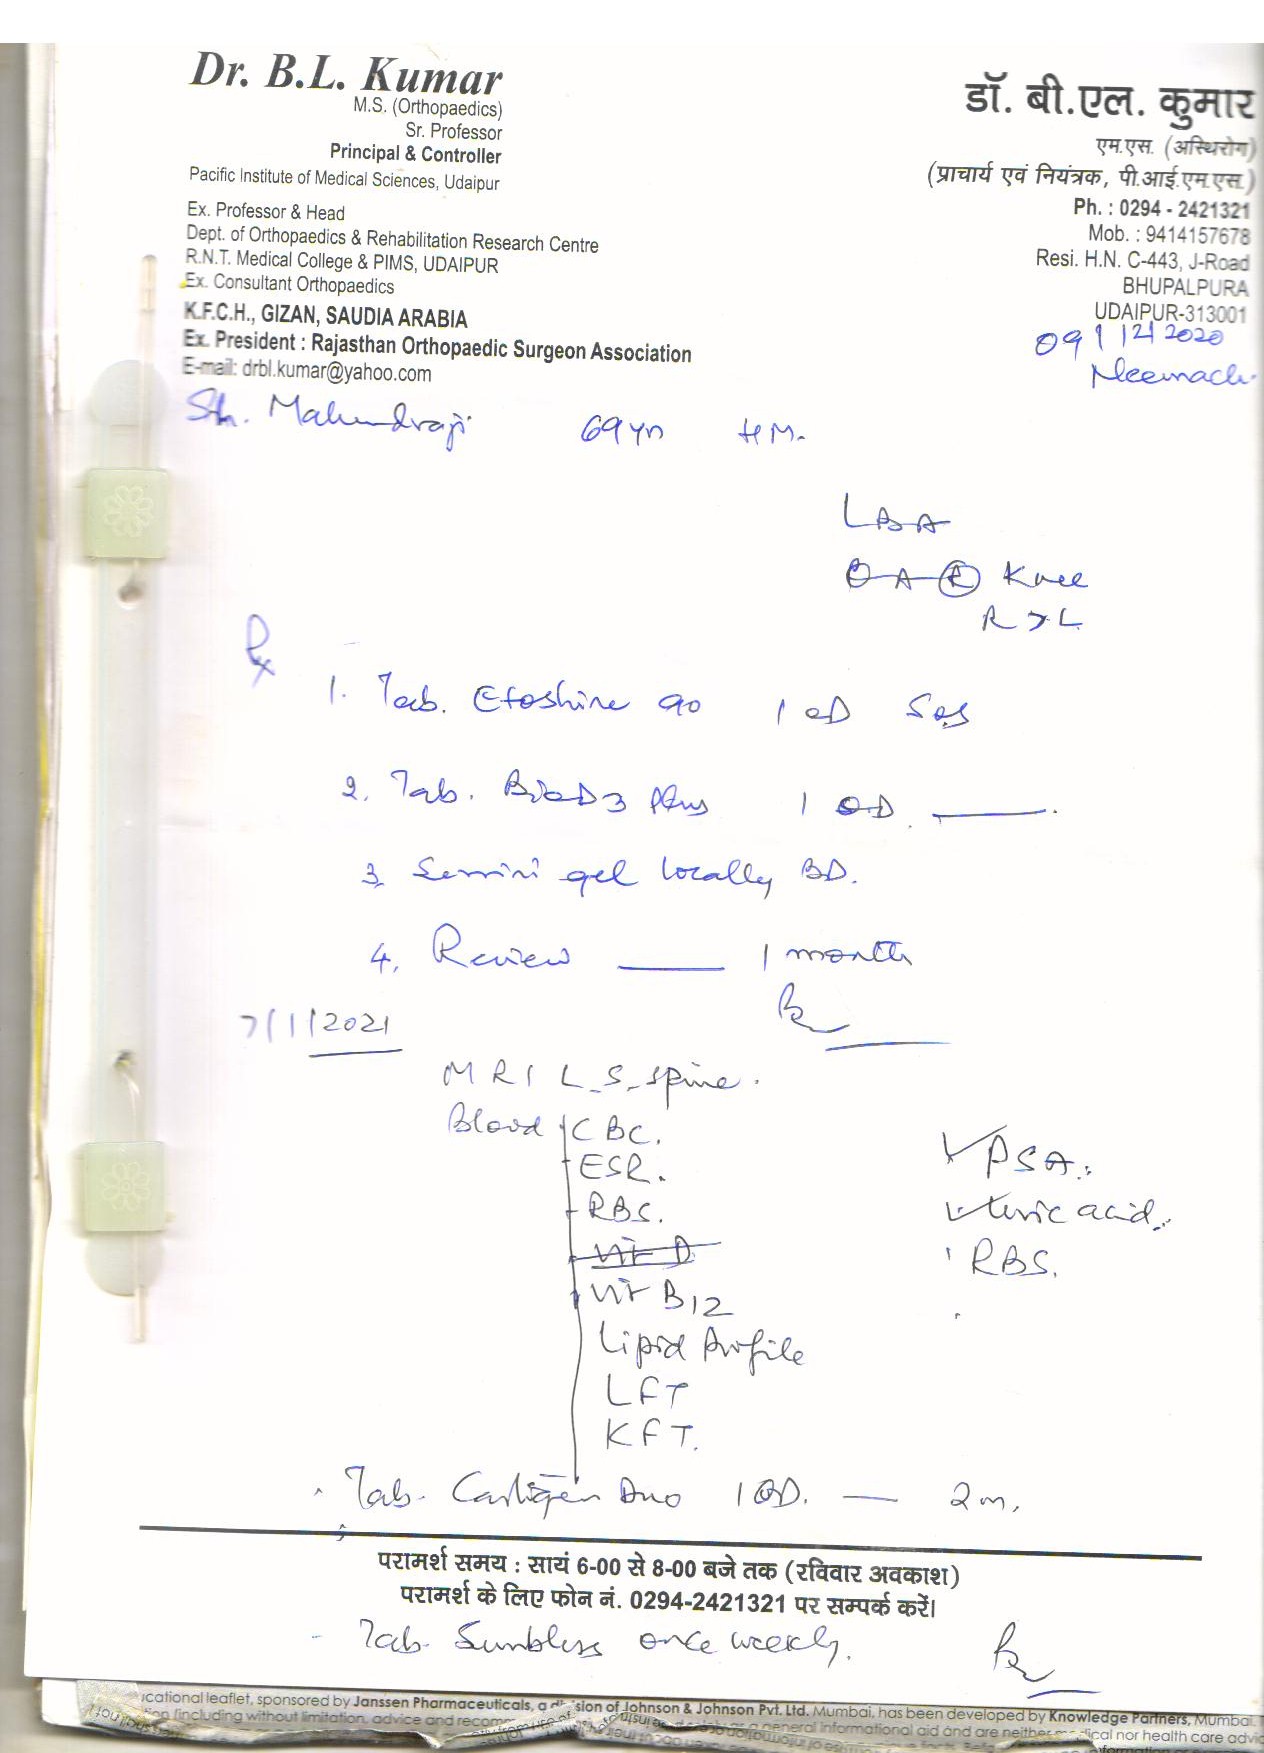 Dr. B.L. Kumar
M.S. (Orthopaedics)
Sr. Professor
Principal & Controller
Pacific Institute of Medical Sciences, Udaipur
Ex. Professor & Head
Dept. of Orthopaedics & Rehabilitation Research Centre
R.N.T. Medical College & PIMS, UDAIPUR
Ex. Consultant Orthopaedics
K.F.C.H., GIZAN, SAUDIA ARABIA
Ex. President : Rajasthan Orthopaedic Surgeon Association
E-mail: drbl.kumar@yahoo.com
डॉ. बी.एल. कुमार
एम.एस. (अस्थिरोग)
(प्राचार्य एवं नियंत्रक, पी.आई.एम.एस.)
Ph. : 0294 - 2421321
Mob. : 9414157678
Resi. H.N. C-443, J-Road
BHUPALPURA
UDAIPUR-313001
09/12/2020
Neemach.
Sh. Mahendraji 69 yrs HM.
LBA
OA (R) Knee
R > L
Rx
1. Tab. Etoshine 90 1 OD SOS
2. Tab. BioD3 Plus 1 OD.
3. gel locally BD.
4. Review 1 month
7/1/2021
MRI L-S-spine.
Blood CBC.
ESR.
RBS.
Vit D
Vit B12
Lipid Profile
LFT
KFT.
PSA.
uric acid.
RBS.
Tab. Cartigen Duo 1 OD. — 2 m.
परामर्श समय : सायं 6-00 से 8-00 बजे तक (रविवार अवकाश)
परामर्श के लिए फोन नं. 0294-2421321 पर सम्पर्क करें।
Tab. Sunbless once weekly.
icational leaflet, sponsored by Janssen Pharmaceuticals, a division of Johnson & Johnson Pvt. Ltd. Mumbai, has been developed by Knowledge Partners, Mumbai.
(including without limitation, advice and a general informational aid and are neither medical nor health care